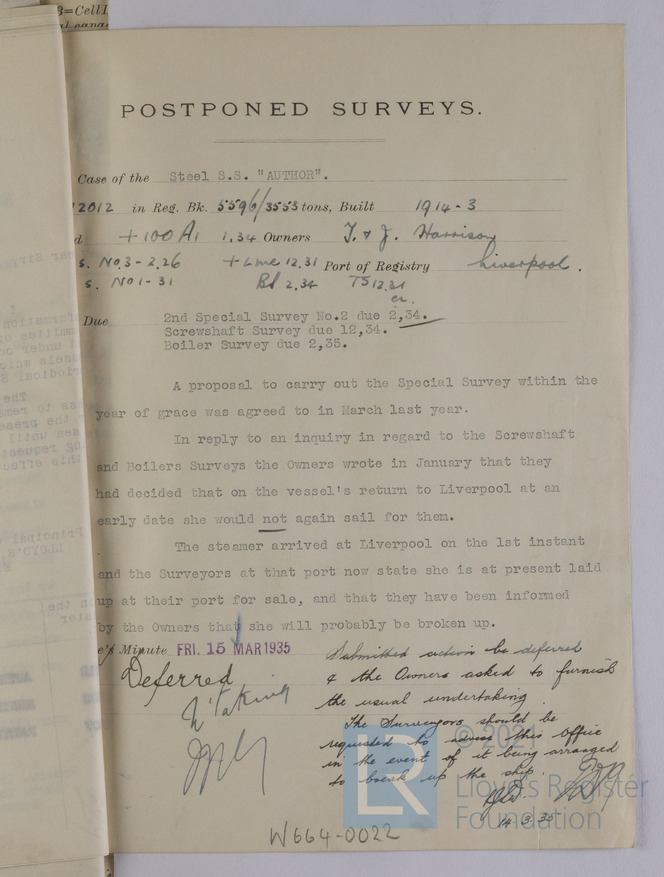 POSTPONED SURVEYS.
Case of the Steel S.S. "AUTHOR".
2012 in Reg. Bk. 5596/3553 tons, Built 1914-3
+100 A1 1.34 Owners T. & J. Harrison
S. No.3-2.26 +LMC 12.31 Port of Registry Liverpool.
S. No1-31 BS 2.34 TS 12.31
Due 2nd Special Survey No.2 due 2,34.
Screwshaft Survey due 12,34.
Boiler Survey due 2,35.
A proposal to carry out the Special Survey within the
year of grace was agreed to in March last year.
In reply to an inquiry in regard to the Screwshaft
and Boilers Surveys the Owners wrote in January that they
had decided that on the vessel's return to Liverpool at an
early date she would not again sail for them.
The steamer arrived at Liverpool on the 1st instant
and the Surveyors at that port now state she is at present laid
up at their port for sale, and that they have been informed
by the Owners that she will probably be broken up.
Minute FRI. 15 MAR 1935
Deferred
Submitted action be deferred
& the Owners asked to furnish
the usual undertaking.
The Surveyors should be
requested to advise this Office
in the event of it being arranged
to break up the ship.
14.3.35
© 2021
LR
Lloyd's Register
Foundation
W664-0022